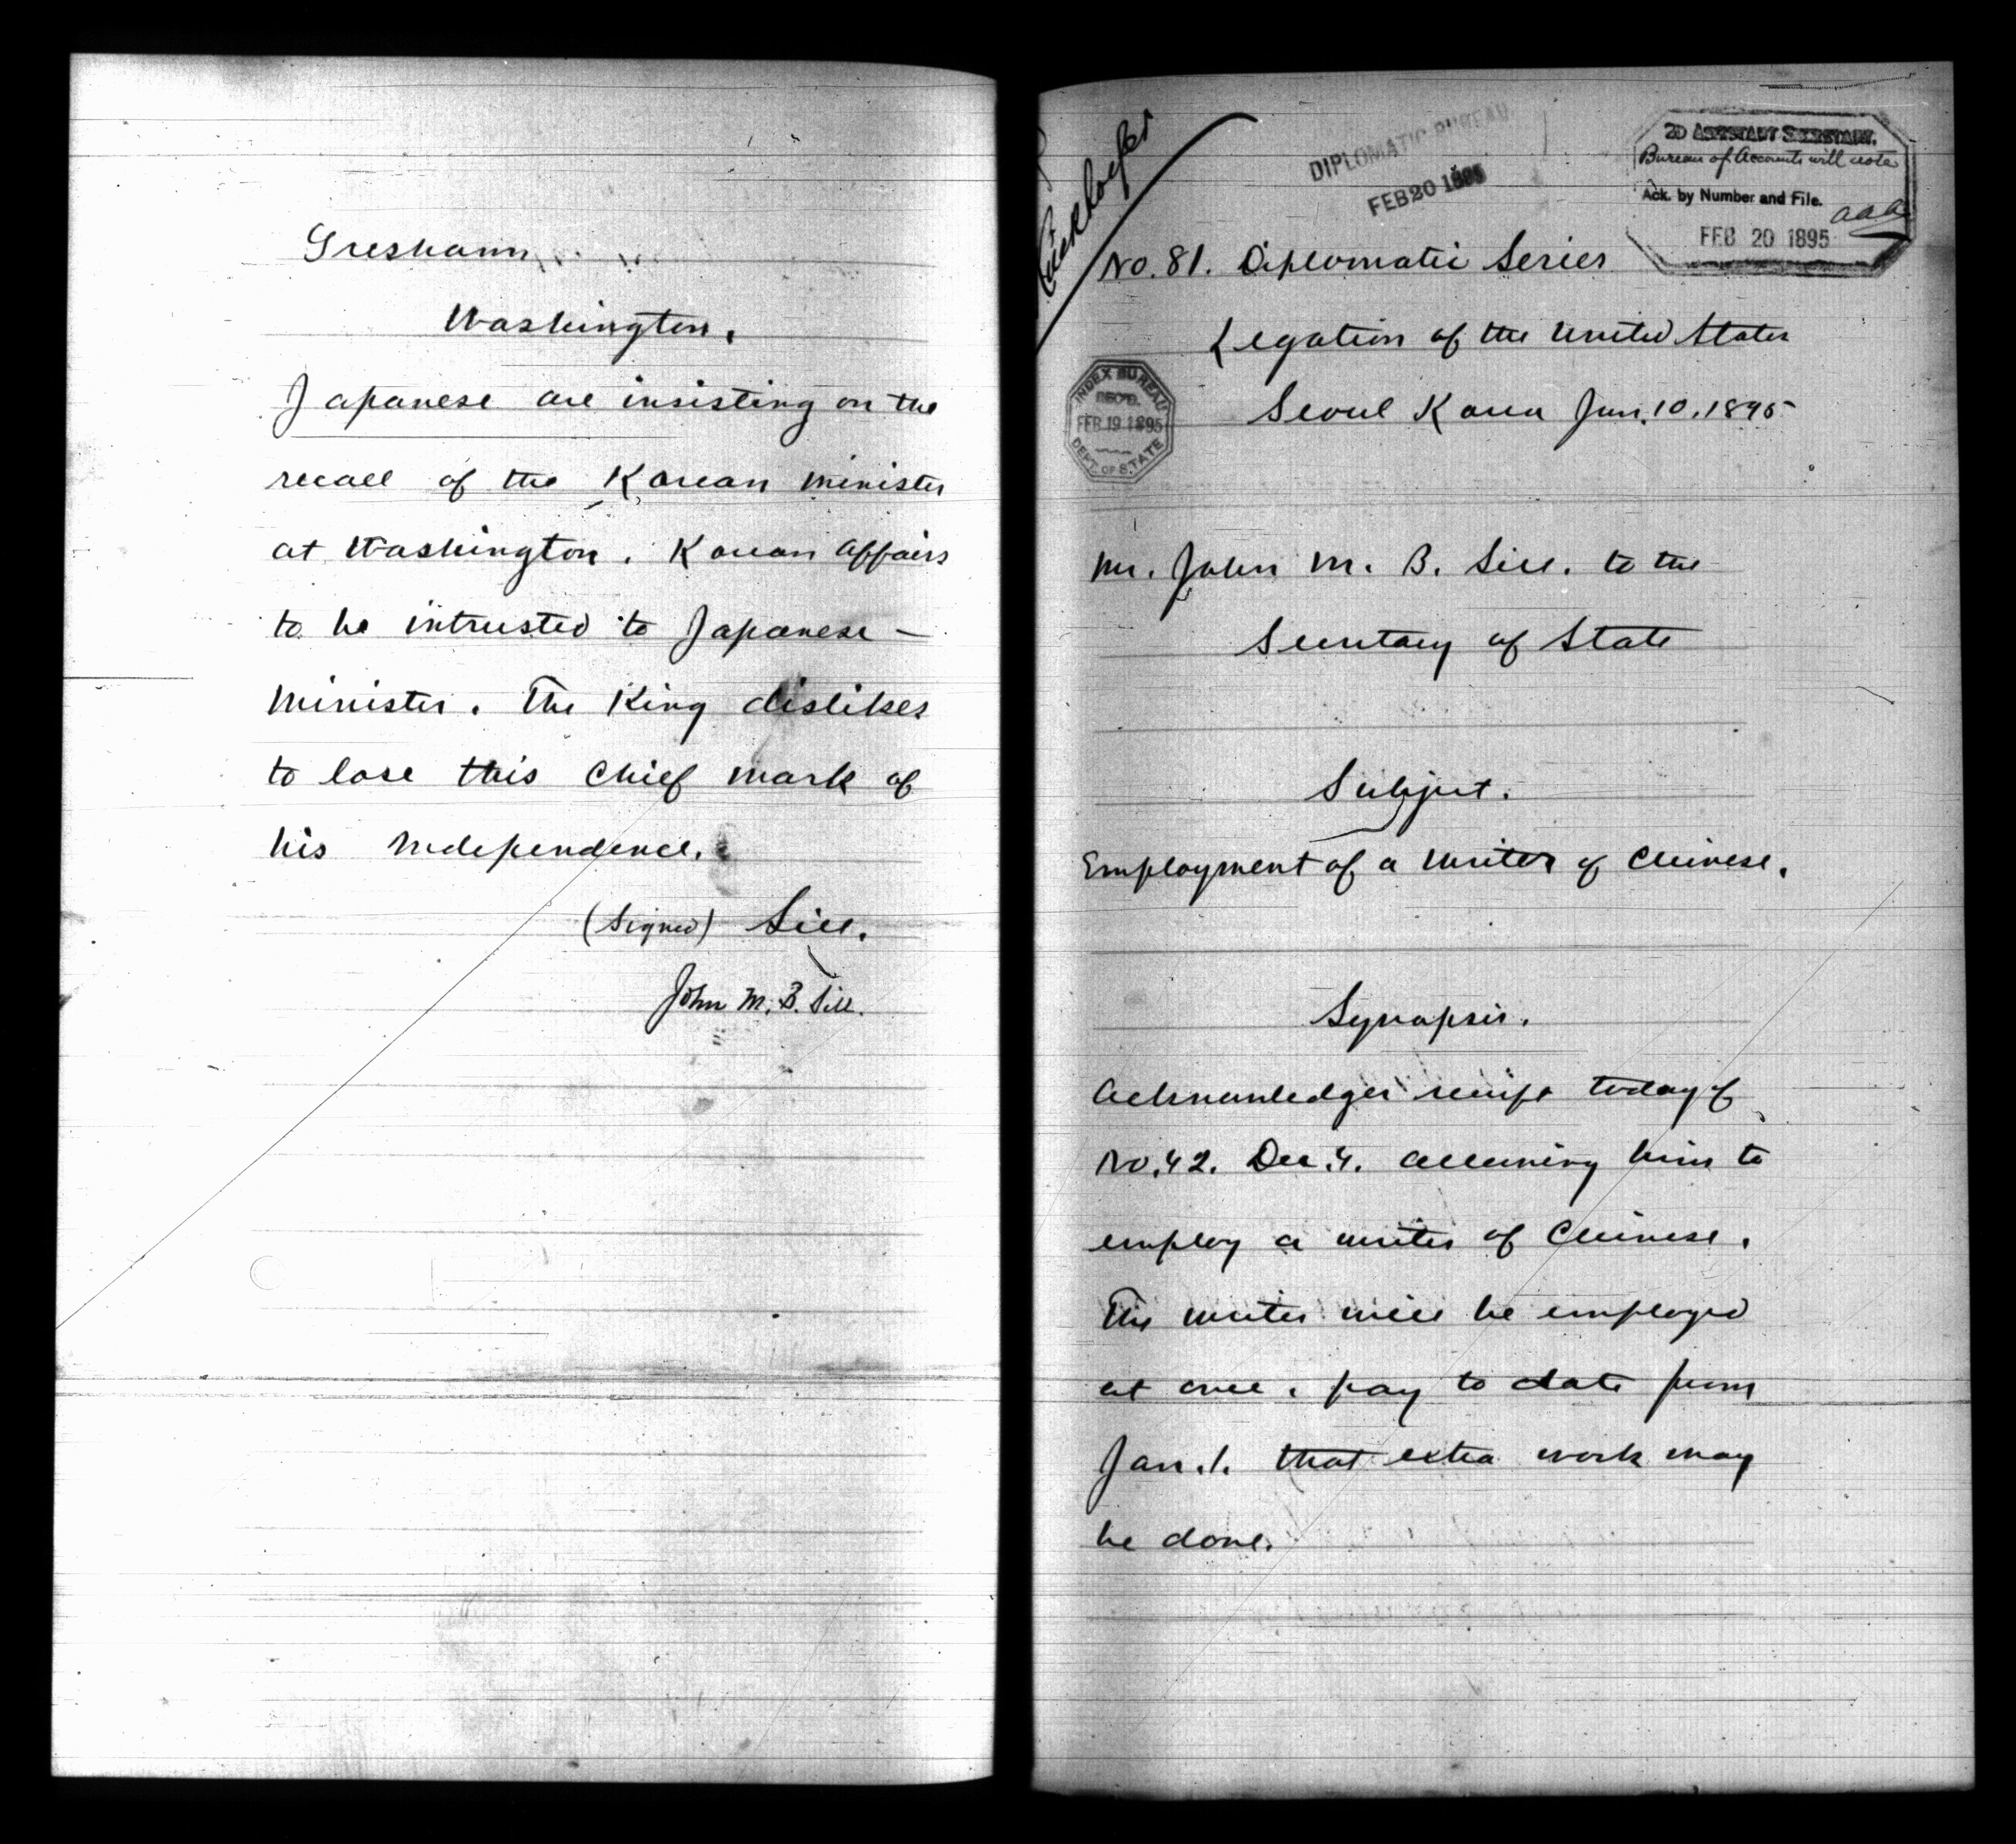 Gresham
Washington.
Japanese are insisting on the
recall of the Korean minister
at Washington. Korean affairs
to be intrusted to Japanese –
Minister. The King dislikes
to lose this chief mark of
his independence.
(Signed) Sill.
John M. B. Sill.
DIPLOMATIC BUREAU.
FEB 20 1895
2D ASSISTANT SECRETARY.
Bureau of Accounts will note
Ack. by Number and File.
aaa
FEB 20 1895
No. 81. Diplomatic Series
Legation of the United States
INDEX BUREAU
REC'D.
FEB 19 1895
DEPT. OF STATE
Seoul Korea Jan. 10. 1895
Mr. John M. B. Sill. to the
Secretary of State
Subject.
Employment of a writer of Chinese.
Synopsis.
Acknowledges receipt today of
No. 42. Dec. 4. allowing him to
employ a writer of Chinese.
The writer will be employed
at once. pay to date from
Jan. 1. that extra work may
be done.